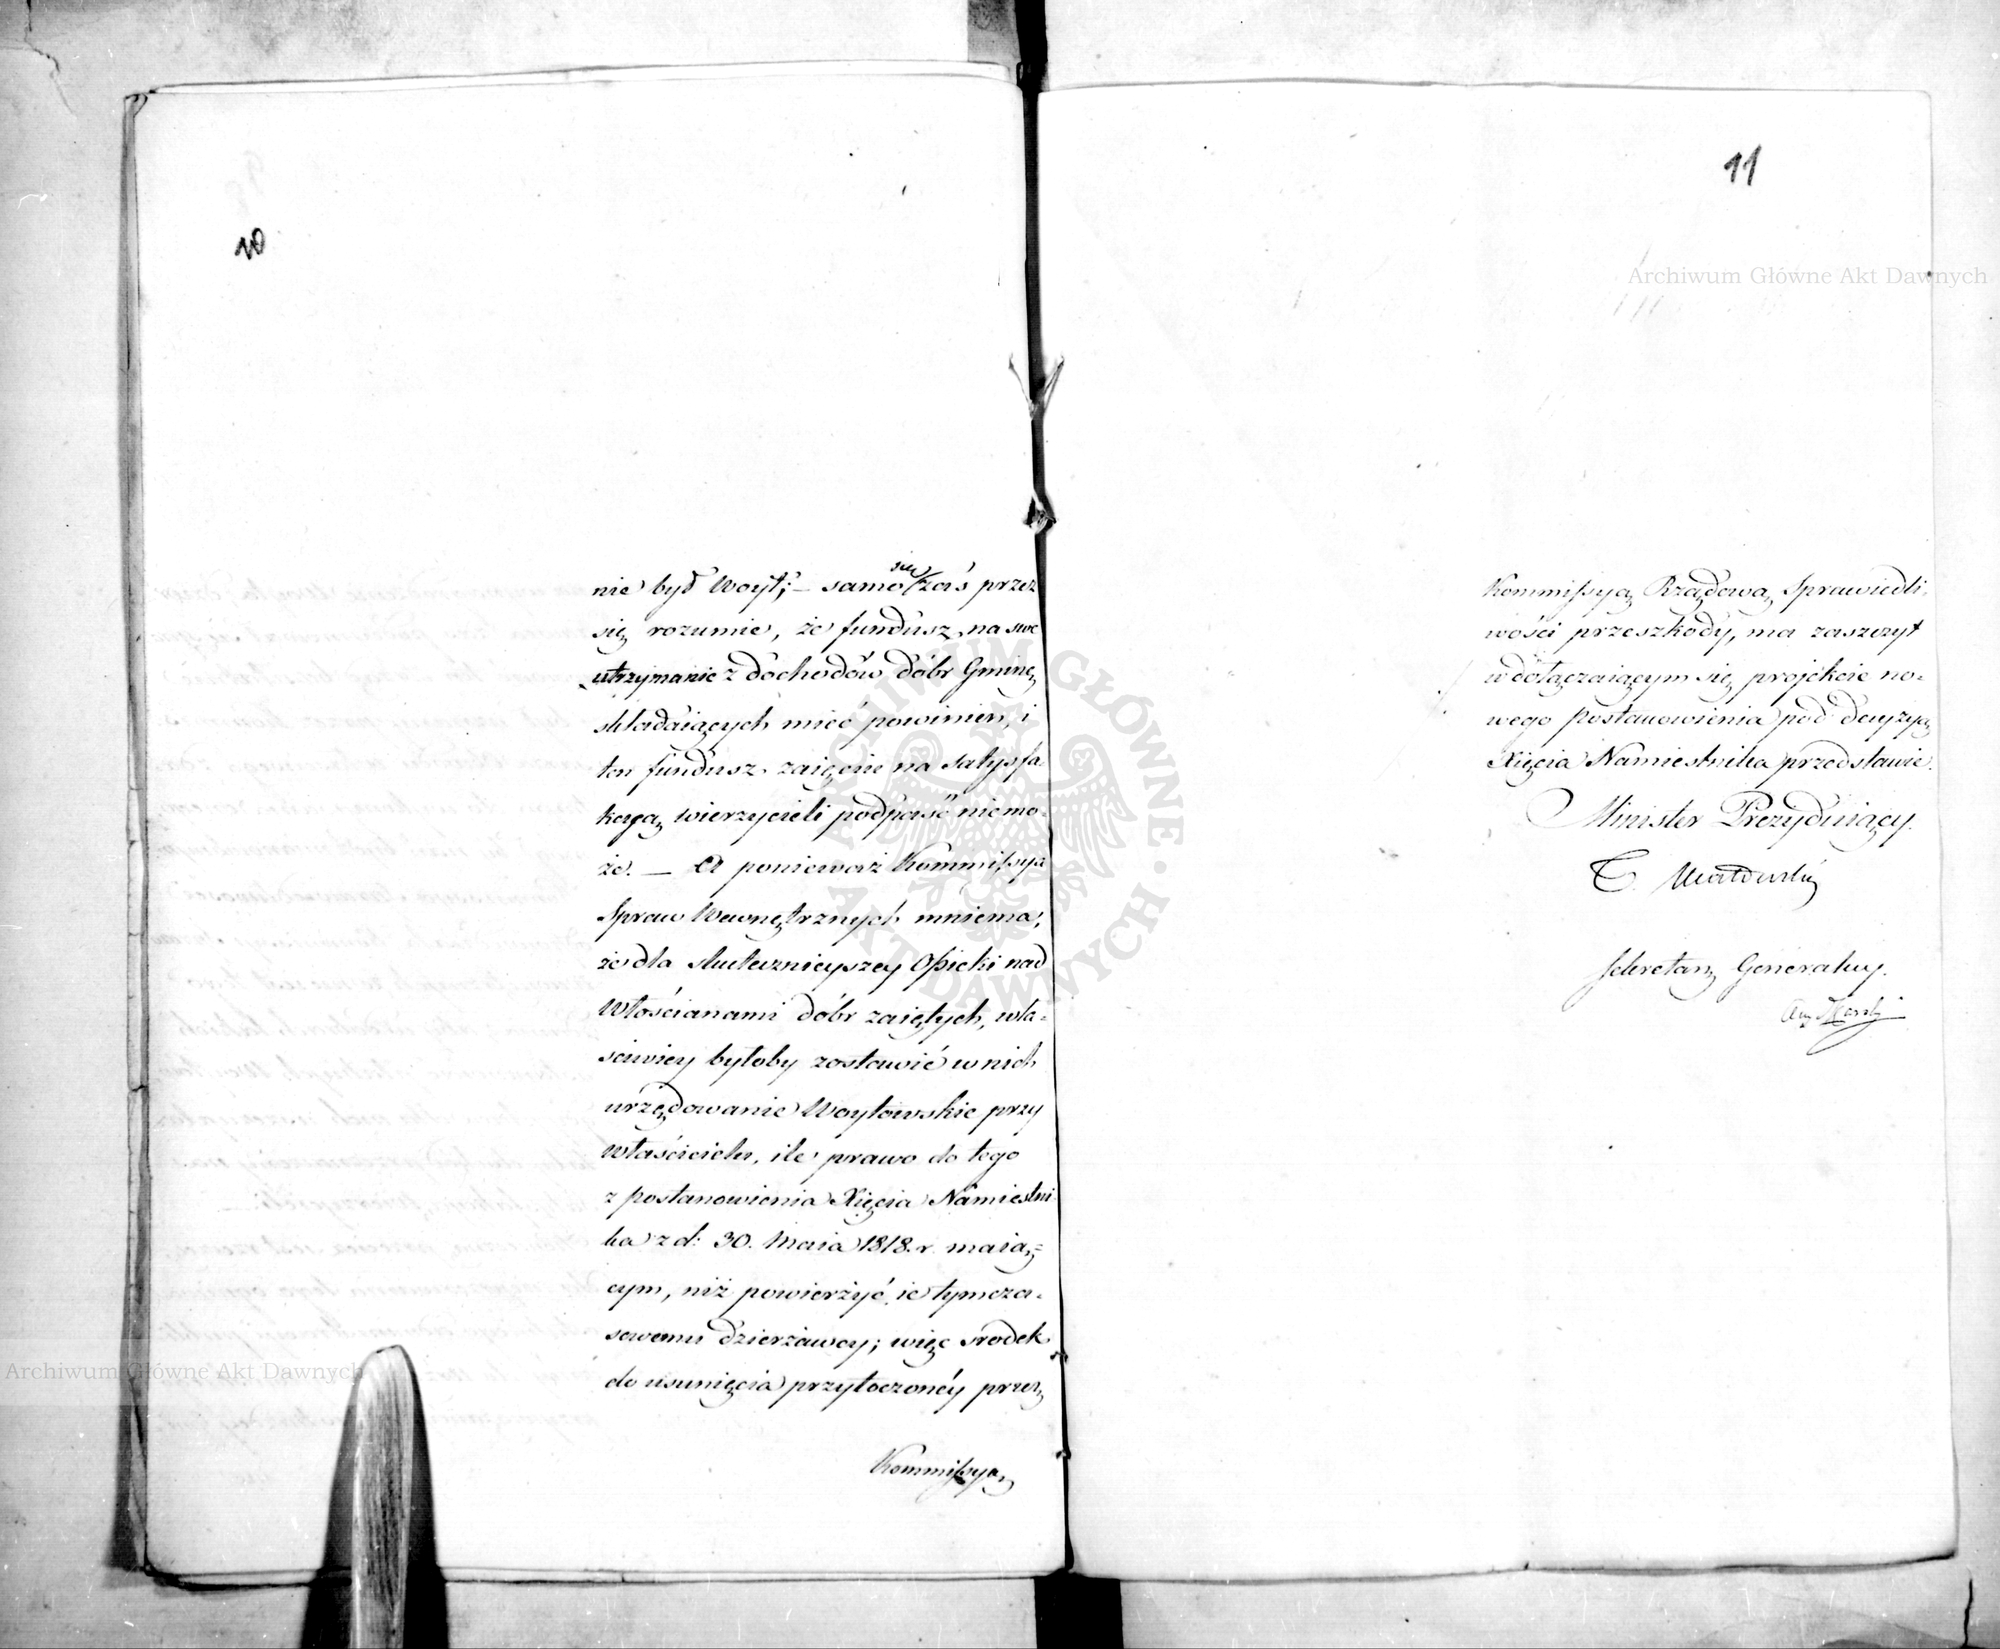 10
nie był Woyt; – samo się zaś przez
się rozumie, że fundusz na swe
utrzymanie z dochodów dóbr Gminę
składaiących mieć powinien, i
ten fundusz zaięciu na satysfa
kcyą wierzycieli podpaść niemo-
że. — A ponieważ Kommissya
Spraw Wewnętrznych mniema,
że dla skutecznieyszey Opieki nad
Włościanami dóbr zaiętych, wła-
ściwiey byłoby zostawić w nich
urzędowanie Woytowskie przy
właścicielu, ile prawo do tego
z postanowienia Xięcia Namiestni
ka z d: 30. Maia 1818. r. maią-
cym, niż powierzyć ie tymcza-
sowemu dzierżawcy; więc środek
do usunięcia przytoczonéy przez
Kommissyą
11
Kommissyą Rządową Sprawiedli-
wości przeszkody, ma zaszczyt
w dołączaiącym się projekcie no-
wego postanowienia pod decyzyą
Xięcia Namiestnika przedstawić.
Minister Prezyduiący.
T. Mostowski
Sekretarz Generalny.
Archiwum Główne Akt Dawnych
Archiwum Główne Akt Dawnych
ARCHIWUM GŁÓWNE AKT DAWNYCH